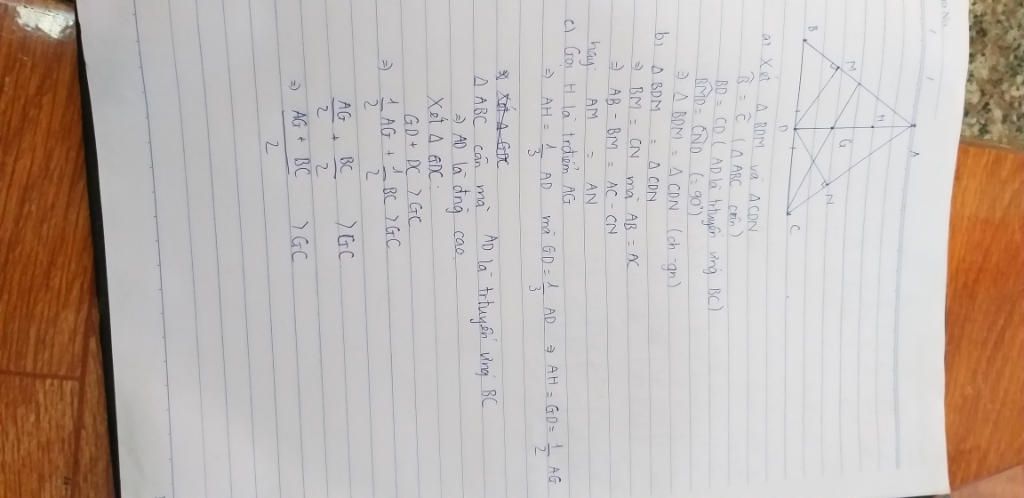 A
H
M
G
N
B
D
C
a) Xét Δ BDM và Δ CDN
B̂ = Ĉ (Δ ABC cân)
BD = CD (AD là trtuyến ứng BC)
BMD = CND (= 90°)
⇒ Δ BDM = Δ CDN (ch-gn)
b) Δ BDM = Δ CDN
⇒ BM = CN mà AB = AC
⇒ AB - BM = AC - CN
hay AM = AN
c) Gọi H là trđiểm AG
⇒ AH = 1/3 AD mà GD = 1/3 AD ⇒ AH = GD = 1/2 AG
Xét Δ GDC
Δ ABC cân mà AD là trtuyến ứng BC
⇒ AD là đng cao
Xét Δ GDC:
GD + DC > GC
⇒ 1/2 AG + 1/2 BC > GC
AG/2 + BC/2 > GC
⇒ AG + BC / 2 > GC